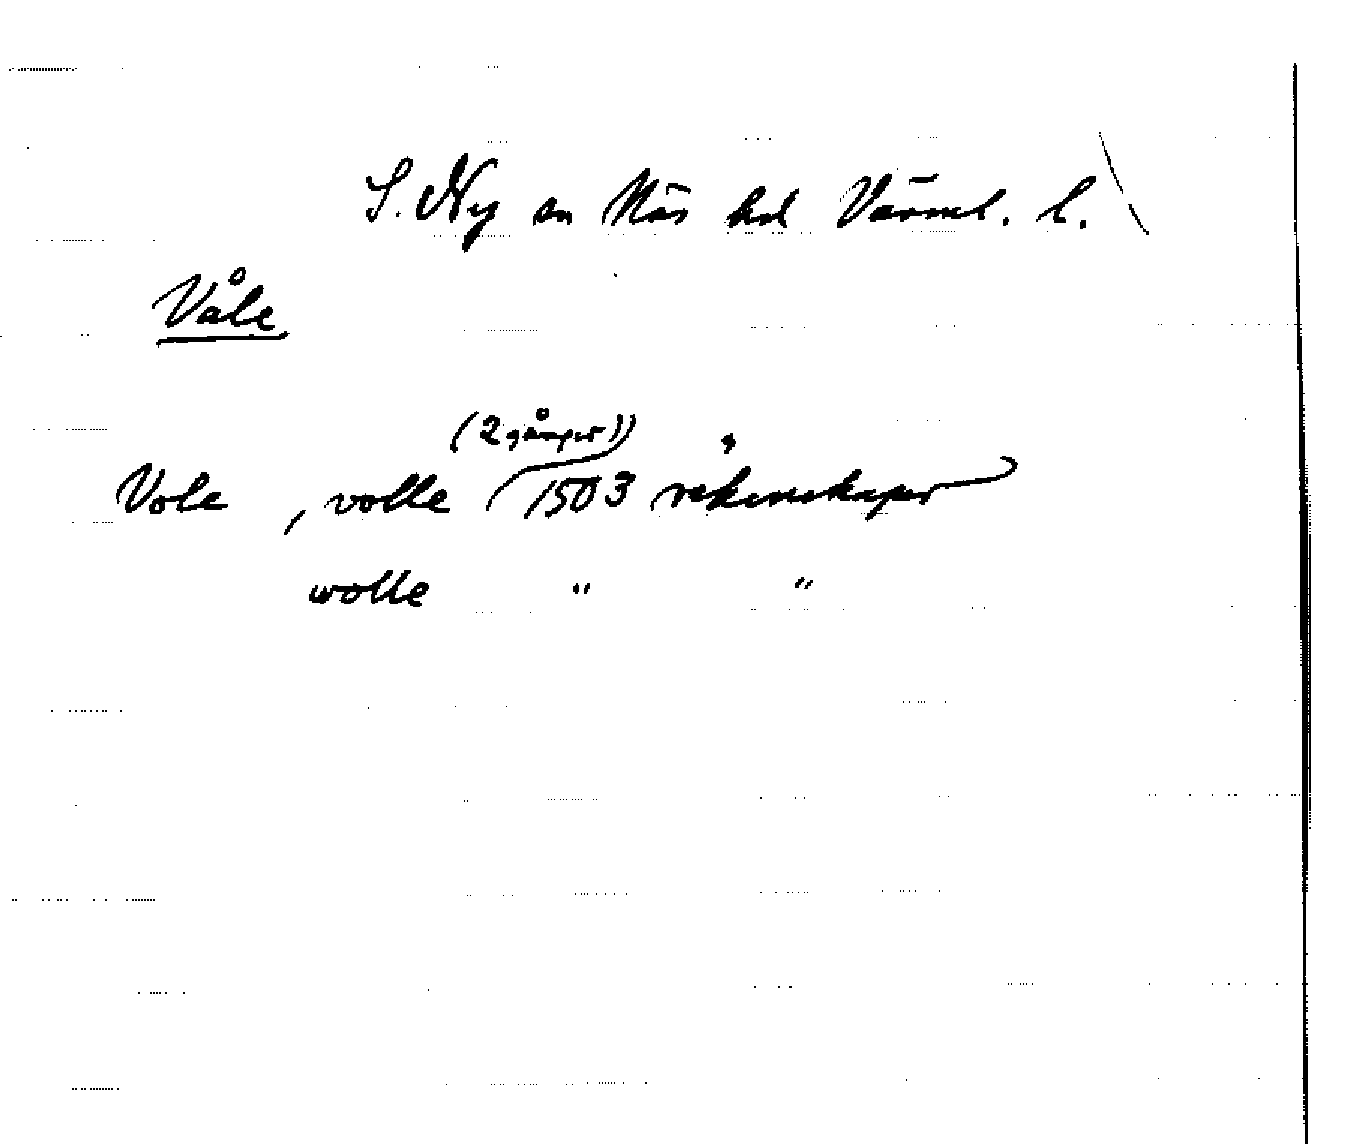 S. Ny sn Näs hd Värml. l.
Våle
(2 gånger))
Vole , volle 1503 räkenskaper
wolle " "